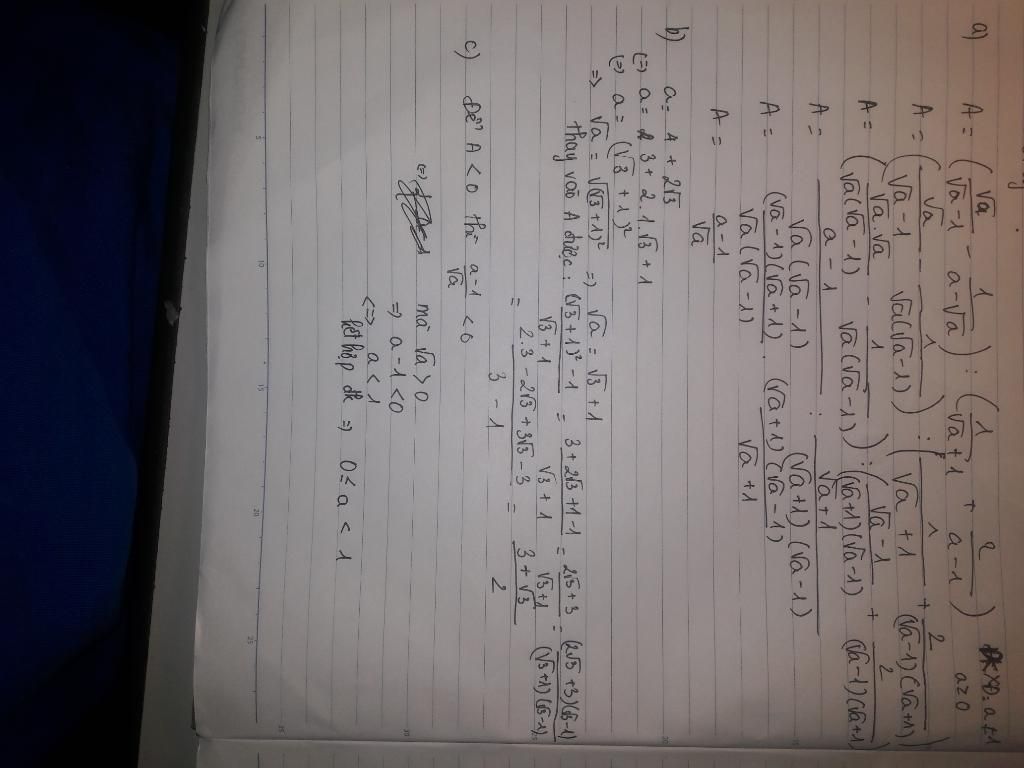 a) A = (√a/(√a-1) - 1/(a-√a)) : (1/(√a+1) + 2/(a-1)) a≥0, a≠1
A = (√a/(√a-1) - 1/(√a(√a-1))) : (1/(√a+1) + 2/((√a-1)(√a+1)))
A = (√a.√a/(√a(√a-1)) - 1/(√a(√a-1))) : ((√a-1)/((√a+1)(√a-1)) + 2/((√a-1)(√a+1)))
A = (a-1)/(√a(√a-1)) : (√a+1)/((√a+1)(√a-1))
A = (√a-1)(√a+1)/(√a(√a-1)) . (√a+1)(√a-1)/(√a+1)
A = (a-1)/√a
b) a = 4 + 2√3
(=) a = 3 + 2.1.√3 + 1
(=) a = (√3 + 1)²
=> √a = √(√3+1)² => √a = √3 + 1
Thay vào A được: ((√3+1)²-1)/(√3+1) = (3+2√3+1-1)/(√3+1) = (2√3+3)/(√3+1) = (2√3+3)(√3-1)/((√3+1)(√3-1))
= (2.3-2√3+3√3-3)/(3-1) = (3+√3)/2
c) Để A < 0 thì (a-1)/√a < 0
mà √a > 0
=> a-1 < 0
<=> a < 1
kết hợp đk => 0 ≤ a < 1